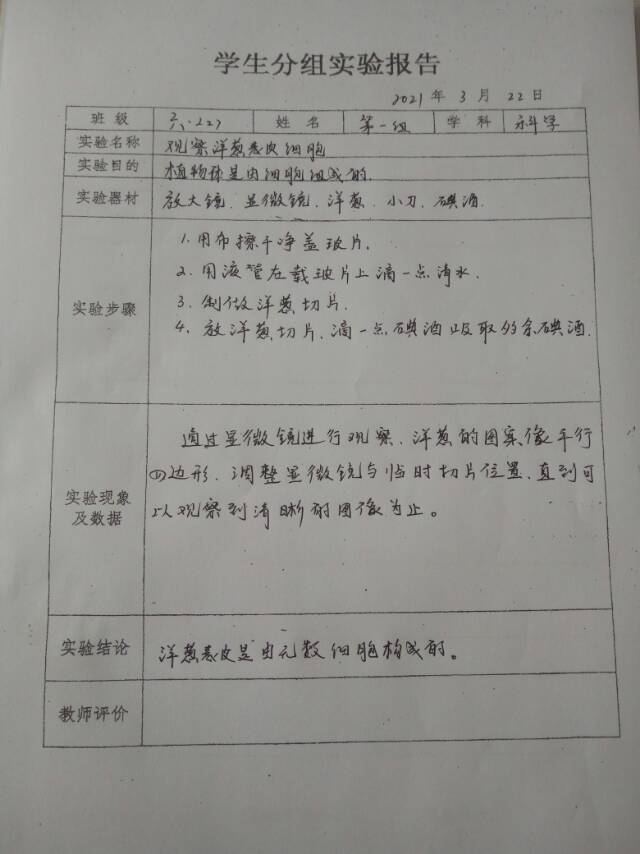 学生分组实验报告
2021 年 3 月 22 日
班 级 六.227 姓 名 第一组 学 科 科学
实验名称 观察洋葱表皮细胞
实验目的 植物体是由细胞组成的.
实验器材 放大镜.显微镜.洋葱.小刀.碘酒.
实验步骤
1.用布擦干净盖玻片.
2.用滴管在载玻片上滴一点清水.
3.制做洋葱切片.
4.放洋葱切片.滴一点碘酒吸取多余碘酒.
实验现象
及数据
通过显微镜进行观察.洋葱的图案像平行
四边形.调整显微镜与临时切片位置.直到可
以观察到清晰的图像为止。
实验结论 洋葱表皮是由无数细胞构成的。
教师评价